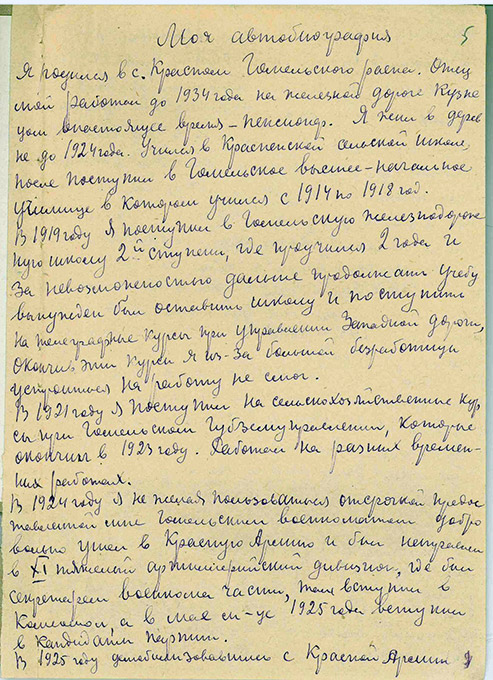 5
Моя автобиография
Я родился в с. Красном Гомельского района. Отец
мой работал до 1934 года на железной дороге кузне
цом внастоящее время – пенсионер. Я жил в дерев
не до 1924 года. Учился в Красненской сельской школе,
после поступил в Гомельское высшее-начальное
училище в котором учился с 1914 по 1918 год.
В 1919 году я поступил в Гомельскую железнодорож
ную школу 2й ступени, где проучился 2 года и
за невозможностью дальше продолжать учебу
вынужден был оставить школу и поступить
на телеграфные курсы при управлении Западной дороги,
окончив эти курсы я из-за большой безработицы
устроиться на работу не смог.
В 1921 году я поступил на сельскохозяйственные кур
сы при Гомельском Губземуправлении, которые
окончил в 1923 году. Работал на разных времен-
ных работах.
В 1924 году я не желая пользоваться отсрочкой предос
тавленной мне Гомельским военкоматом добро
вольно ушел в Красную Армию и был направлен
в XI тяжелый артиллерийский дивизион, где был
секретарем военкома части, там вступил в
Комсомол, а в мае м-це 1925 года вступил
в кандидаты партии.
В 1925 году демобилизовавшись с Красной Армии я